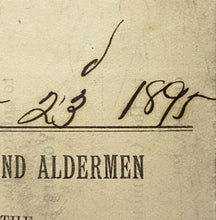 23 1895
ND ALDERMEN
THE